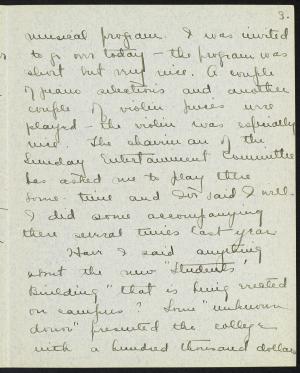 3.
musical program. I was invited
to go over today – the program was
short but very nice. A couple
of piano selections and another
couple of violin pieces were
played – the violin was especially
nice. The chairman of the
Sunday Entertainment Committee
has asked me to play there
some-time and I've said I will.
I did some accompanying
there several times last year.
Have I said anything
about the new "Students'
Building" that is being erected
on campus? Some "unknown
donor" presented the college
with a hundred thousand dollars